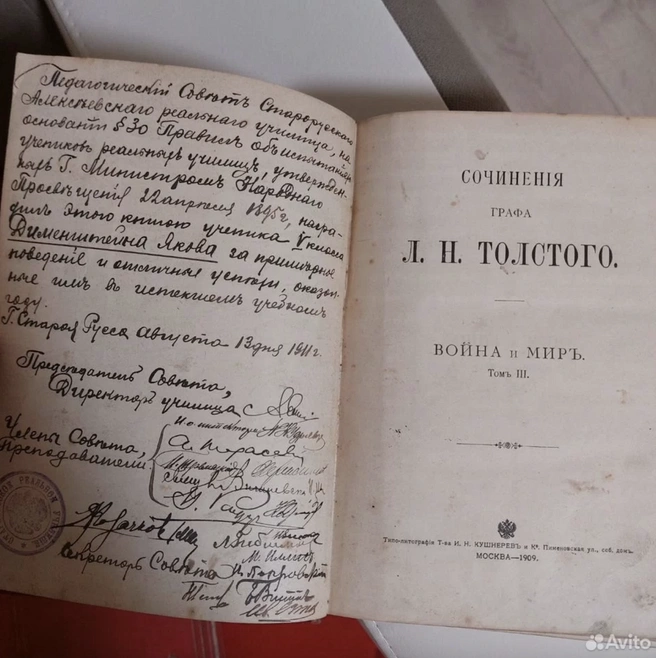 Педагогическій Совѣтъ Старорусскаго
Алексѣевскаго реальнаго училища, на
основаніи § 30 Правилъ объ испытаніяхъ
учениковъ реальныхъ училищъ, утвержден-
ныхъ Г. Министромъ Народнаго
Просвѣщенія 22 апрѣля 1895 г, награ-
дилъ этою книгою ученика V класса
Дименштейна Якова за примѣрное
поведеніе и отличные успѣхи, оказан-
ные имъ въ истекшемъ учебномъ
году.
Г. Старая Русса Августа 13 дня 1911 г.
Предсѣдатель Совѣта,
Директоръ училища
И. о. инспектора
Члены Совѣта,
преподаватели
Секретарь Совѣта
СОЧИНЕНІЯ
ГРАФА
Л. Н. ТОЛСТОГО.
ВОЙНА и МИРЪ.
Томъ III.
Типо-литографія Т-ва И. Н. КУШНЕРЕВЪ и К°. Пименовская ул., соб. домъ.
МОСКВА—1909.
Avito